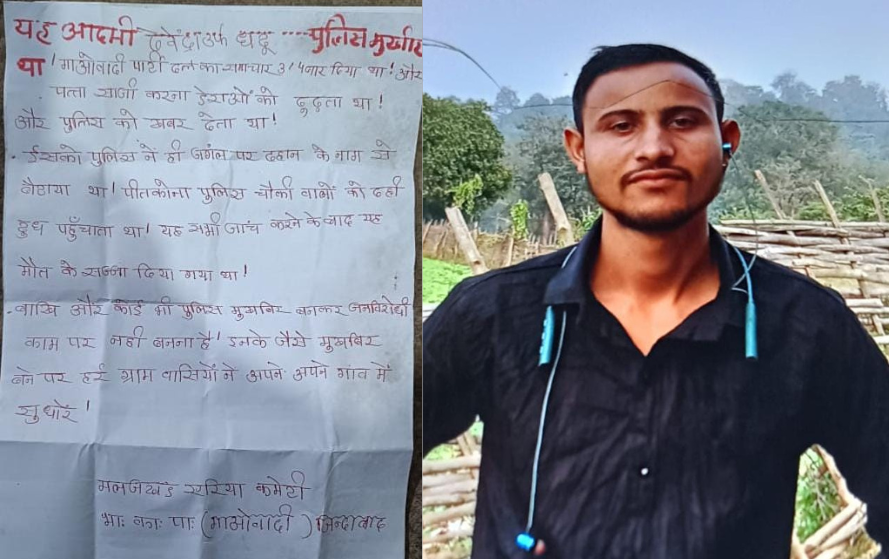 यह आदमी देवेंद्र उर्फ धदू .... पुलिस मुखबीर
था! माओवादी पार्टी दल का समाचार 3/4 बार दिया था! और
पता साजी करना डेराओं को ढुढता था!
और पुलिस को खबर देता था!
. ईसको पुलिस ने ही जगंल पर दहान के नाम से
बैठाया था! पीतकोना पुलिस चौकी वालों को दही
दुध पहुँचाता था! यह सभी जांच करने के बाद यह
मौत के सज्जा दिया गया था!
. बाखि और कोई भी पुलिस मुखबिर बनकर जनविरोधी
काम पर नही बनना है! इनके जैसे मुखबिर
बने पर हर ग्राम वासियों ने अपने अपने गांव में
सुधारें!
मलाजखंड एरिया कमेटी
भाः काः पाः (माओवादी) जिन्दाबाद